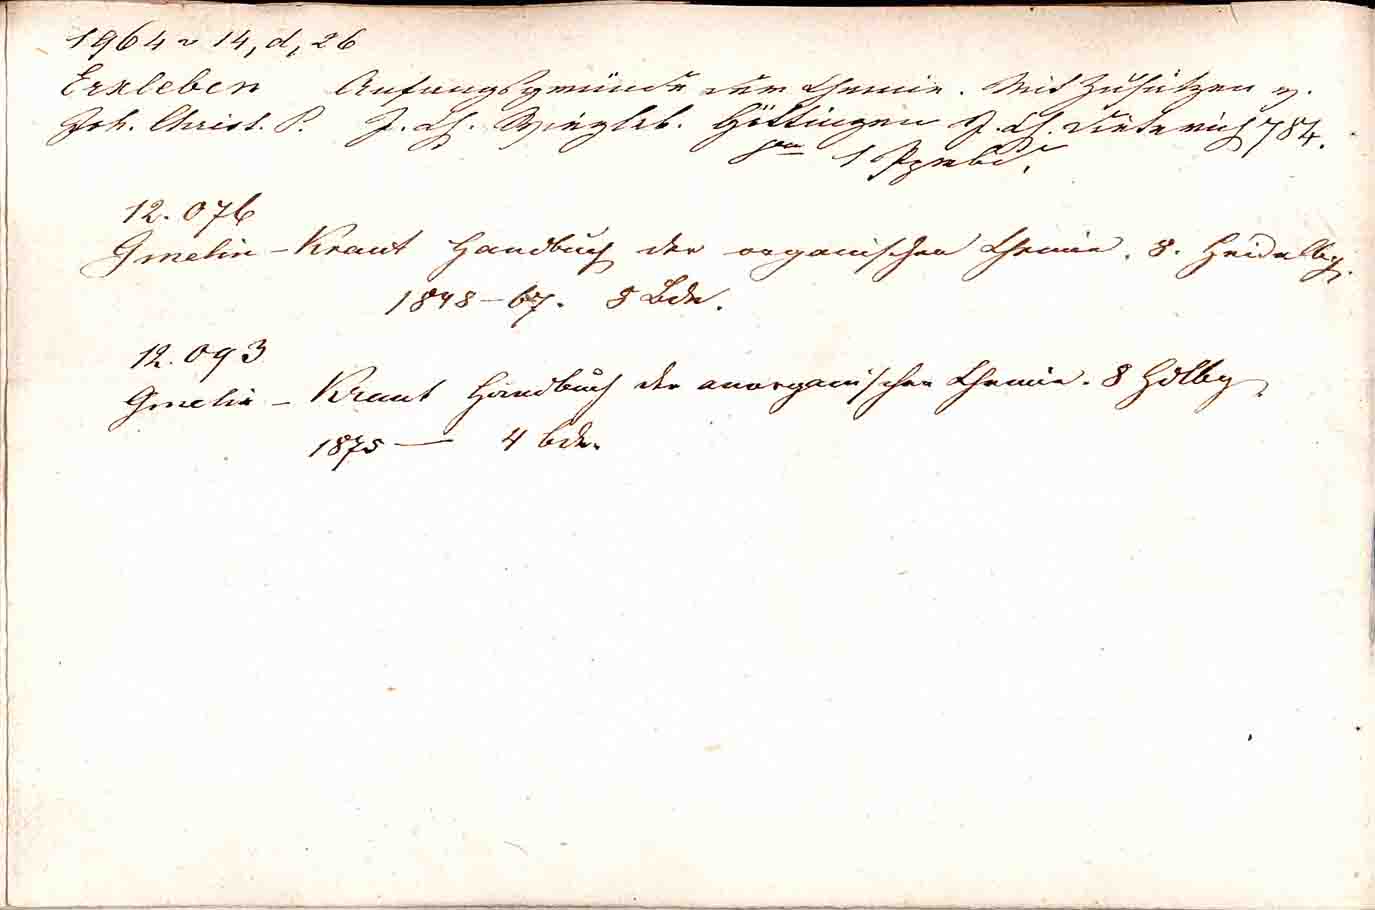 1964 ~ 14, d, 26
Erxleben Anfangsgründe der Chemie. Mit Zusätzen v.
Joh. Christ. P. J. Ch. Wiegleb. Göttingen J. Ch. Dieterich 784.
1 Pprbd.
12.076
Gmelin - Kraut Handbuch der organischen Chemie. 8. Heidelbg.
1848-67. 5 Bde.
12.093
Gmelin - Kraut Handbuch der anorganischen Chemie. 8 Hdlbg
1875 — 4 Bde.